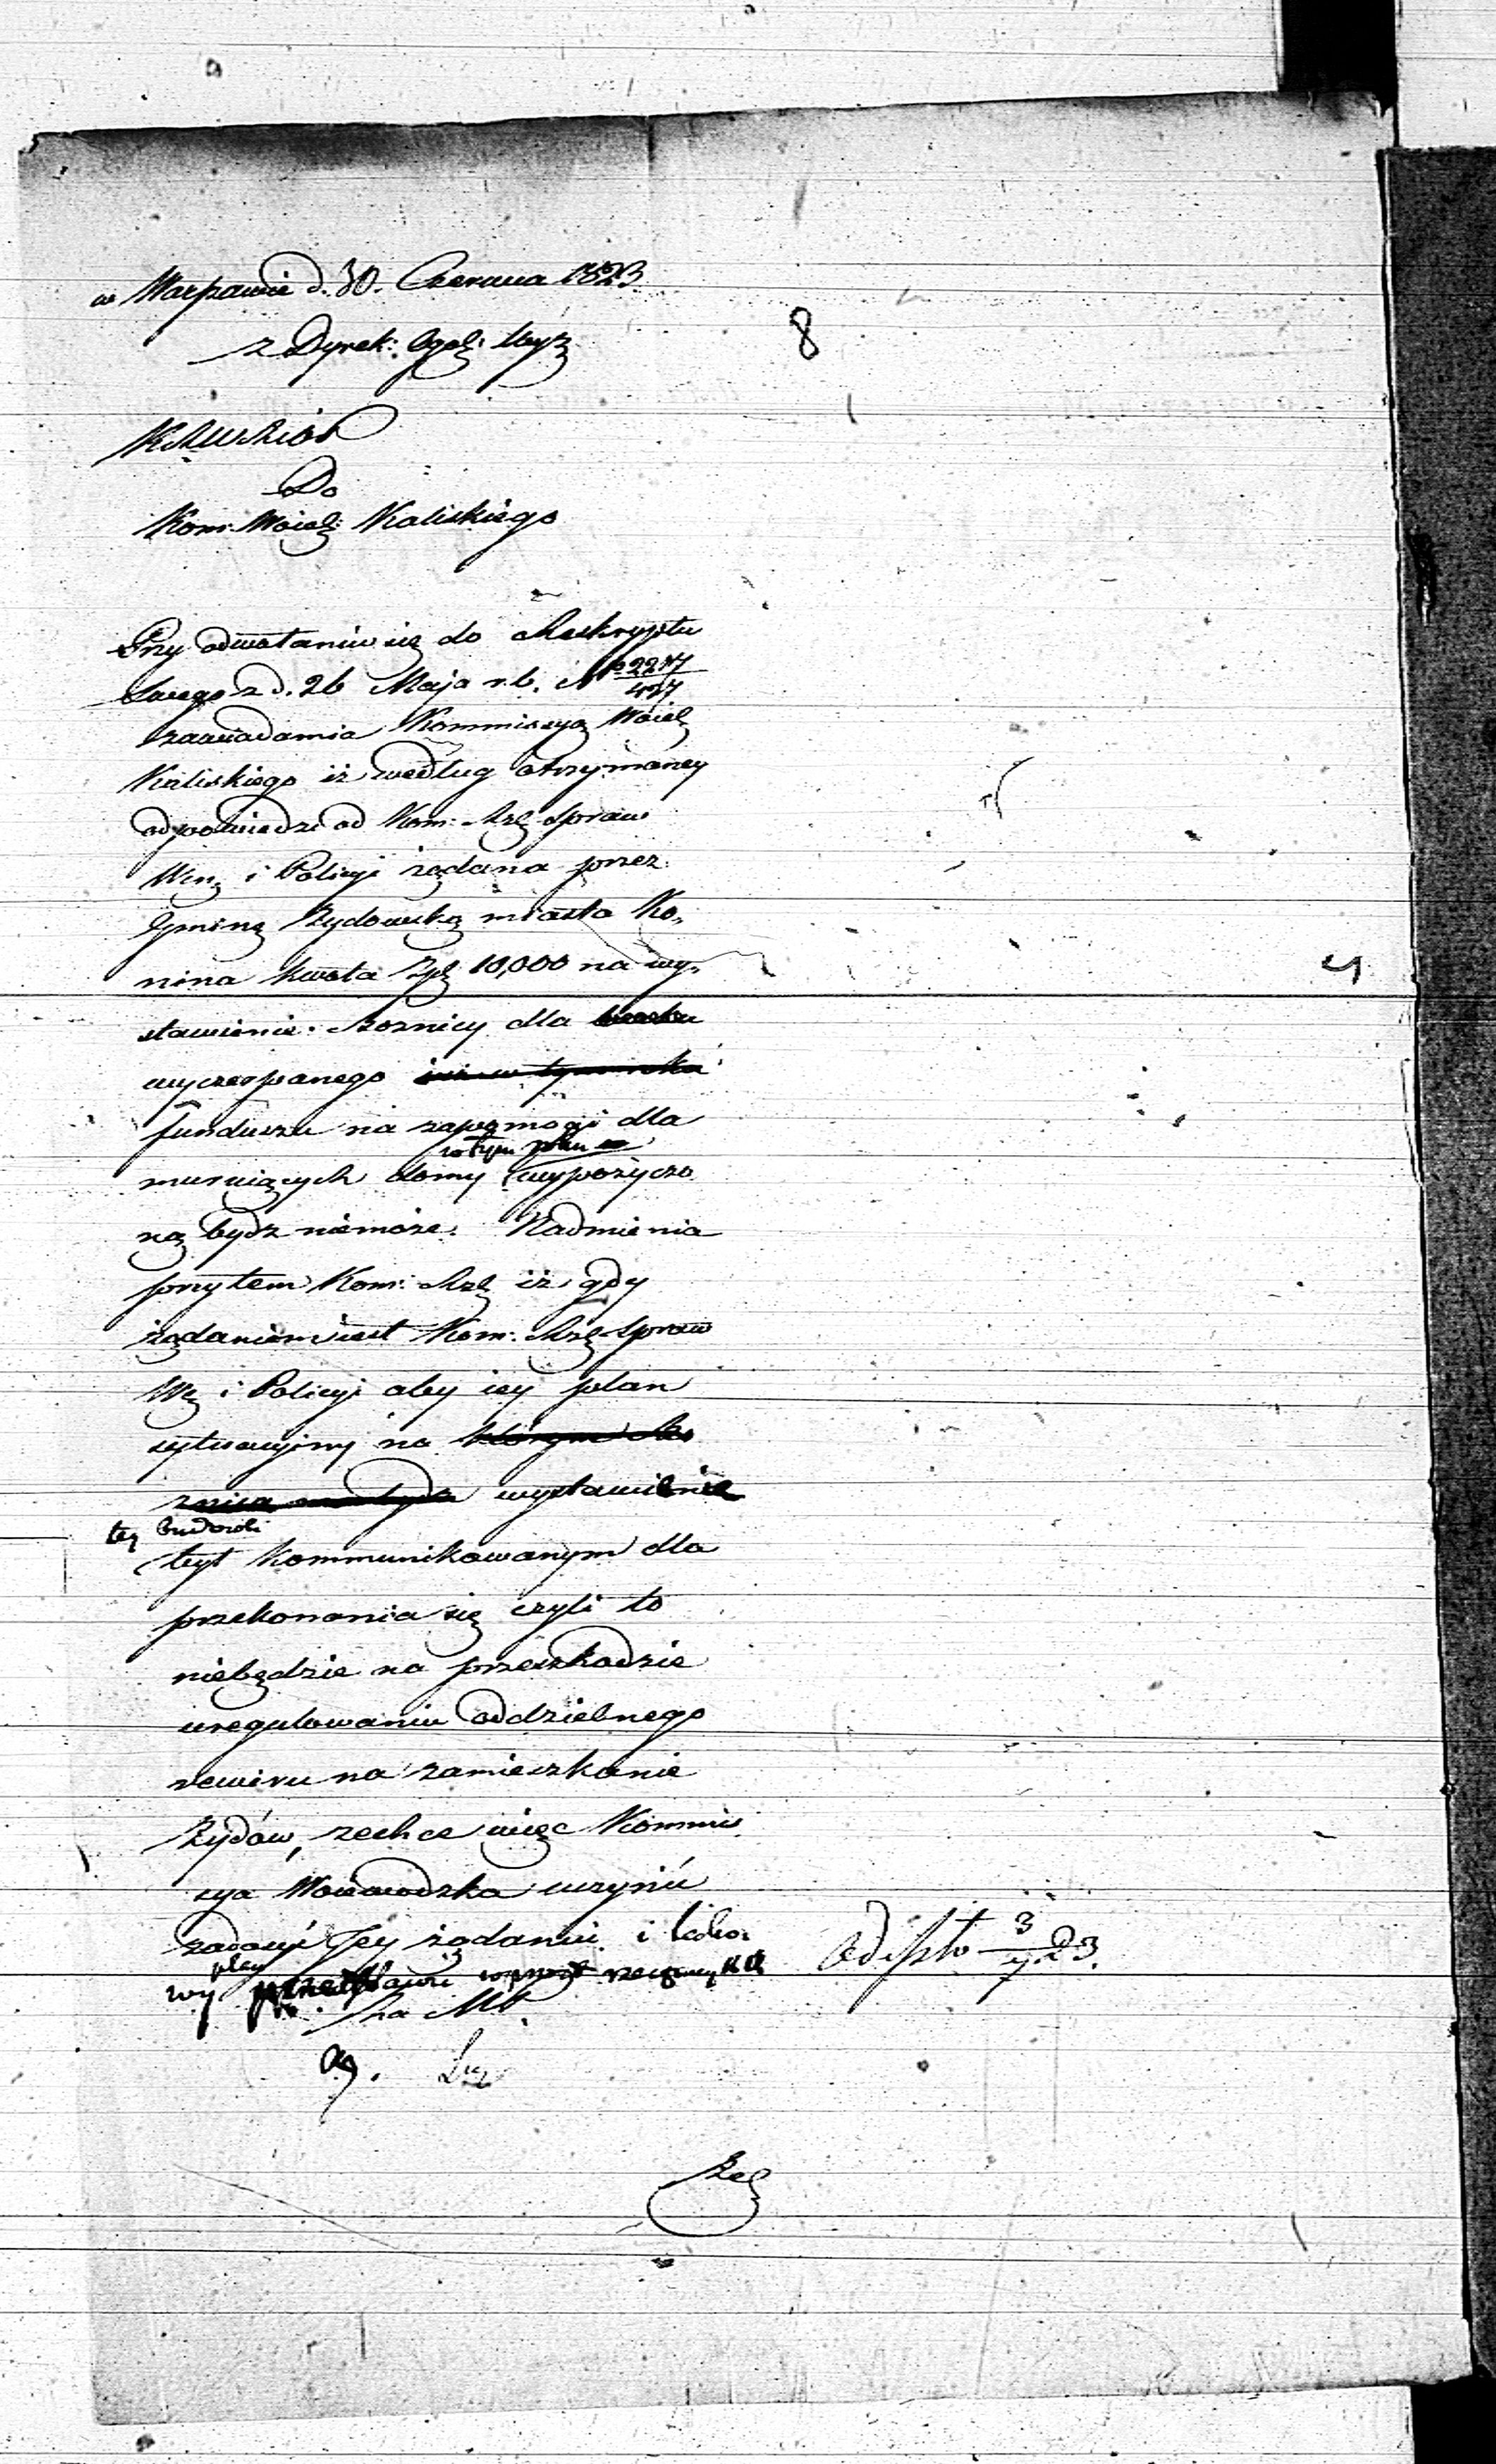 w Warszawie d. 30. Czerwca 1823
z Dyrek: Ogól: Wyz
8
Do
Kom: Woiel: Kaliskiego
Przy odwołaniu się do Reskryptu
Swego z d. 26 Maja r.b. No 2217/427
zawiadamia Kommissyą Woiel
Kaliskiego iż według otrzymaney
odpowiedzi od Kom: Rzl Spraw
Wen i Policyi żądana przez
Gminę Żydowską miasta Ko„
nina kwota Zpl 10,000 na wy„
stawienie Boznicy dla braku
wyczerpanego
funduszu na zapomogi dla
w tym
muruiących domy wypożyczo
ną bydz niemoże. Nadmienia
przytem Kom: Rzl iż gdy
żądaniem iest Kom: Rzl Spraw
We i Policyi aby iey plan
sytuacyiny na którym Bo
znica wystawienie
tey budowli
był kommunikowanym dla
przekonania się czyli to
niebędzie na przeszkodzie
uregulowaniu oddzielnego
rewiru na zamieszkanie
Żydów, zechce więc Kommis
sya Woiewodzka uczynić
zadosyć Jey żądaniu i tako„
wy plan
odeszło 3/7 23.